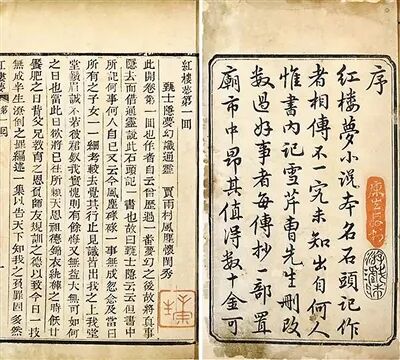 序
紅楼夢小說本名石頭記作
者相傳不一究未知出自何人
惟書内記雪芹曹先生刪改
數過好事者每傳抄一部置
廟市中昂其值得數十金可
紅樓夢第一回
甄士隱夢幻識通靈 賈雨村風塵懷閨秀
此開卷第一回也作者自云曾歷過一番夢幻之後故將真事
隱去而借通靈說此石頭記一書也故曰甄士隱云云但書中
所記何事何人自己又云今風塵碌碌一事無成忽念及當日
所有之子女一一細考較去覺其行止見識皆出我之上我堂
堂鬚眉誠不若彼裙釵我實愧則有餘悔又無益大無可如何
之日也當此日欲將已往所賴天恩祖德錦衣紈袴之時飫甘
饜肥之日背父兄教育之恩負師友規訓之德以致今日一技
無成半生潦倒之罪編述一集以告天下知我之負罪固多然
紅樓夢 第一回